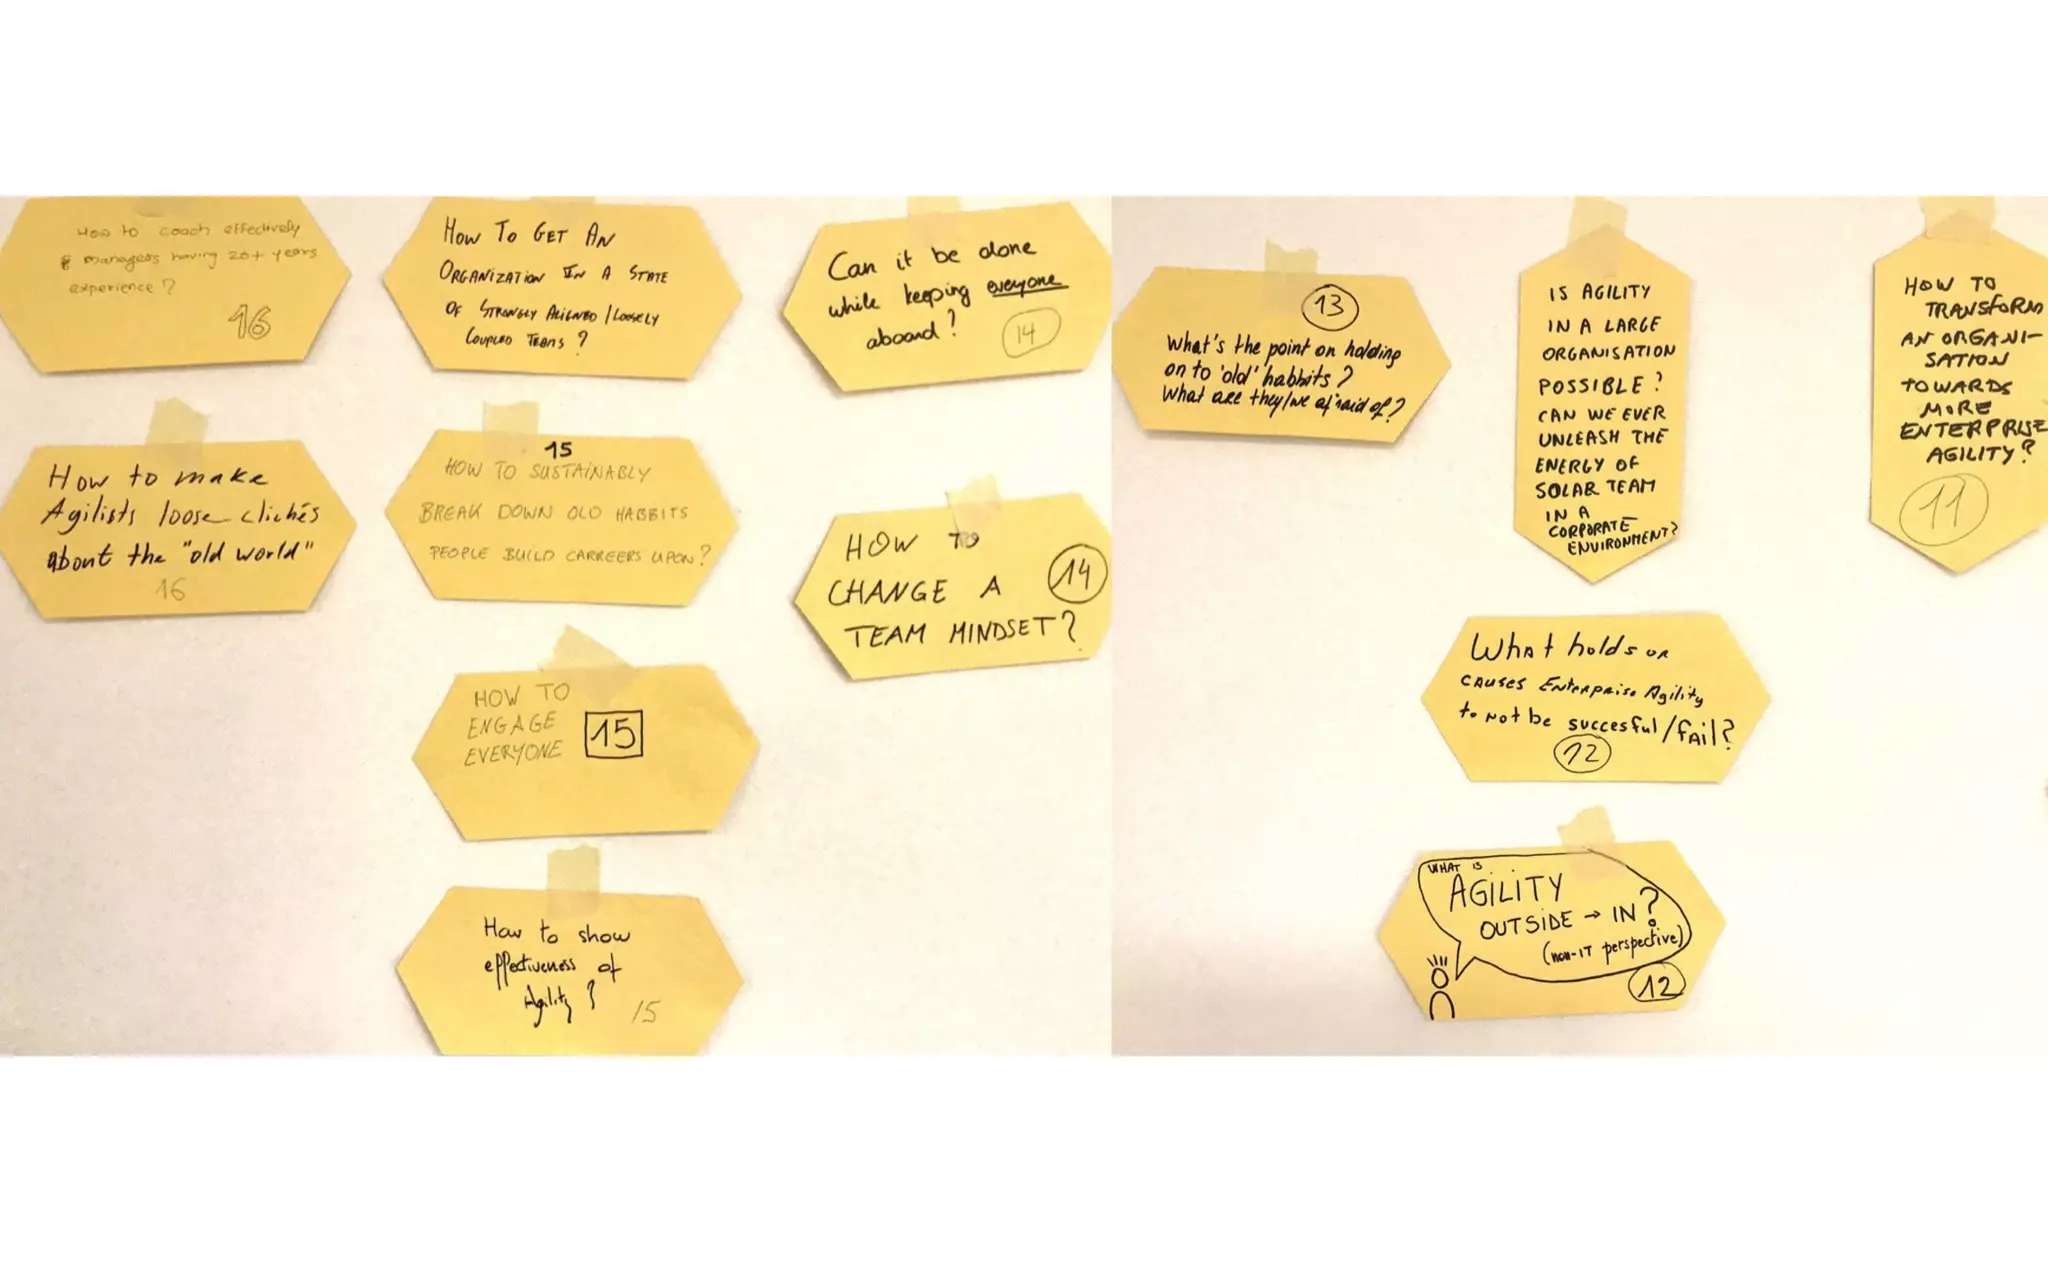 How to coach effectively
managers having 20+ years
experience?
16
How To Get An
Organization In A State
Of Strongly Aligned / Loosely
Coupled Teams ?
Can it be done
while keeping everyone
aboard?
14
How to make
Agilists loose clichés
about the "old world"
16
15
HOW TO SUSTAINABLY
BREAK DOWN OLD HABBITS
PEOPLE BUILD CARREERS UPON?
HOW TO
CHANGE A
TEAM MINDSET?
14
HOW TO
ENGAGE
EVERYONE
15
How to show
effectiveness of
Agility?
15
13
What's the point on holding
on to 'old' habbits?
What are they/we afraid of?
IS AGILITY
IN A LARGE
ORGANISATION
POSSIBLE?
CAN WE EVER
UNLEASH THE
ENERGY OF
SOLAR TEAM
IN A
CORPORATE
ENVIRONMENT?
HOW TO
TRANSFORM
AN ORGANI-
SATION
TOWARDS
MORE
ENTERPRISE
AGILITY?
11
What holds or
causes Enterprise Agility
to not be succesful/fail?
12
WHAT IS
AGILITY
OUTSIDE → IN?
(non-IT perspective)
12